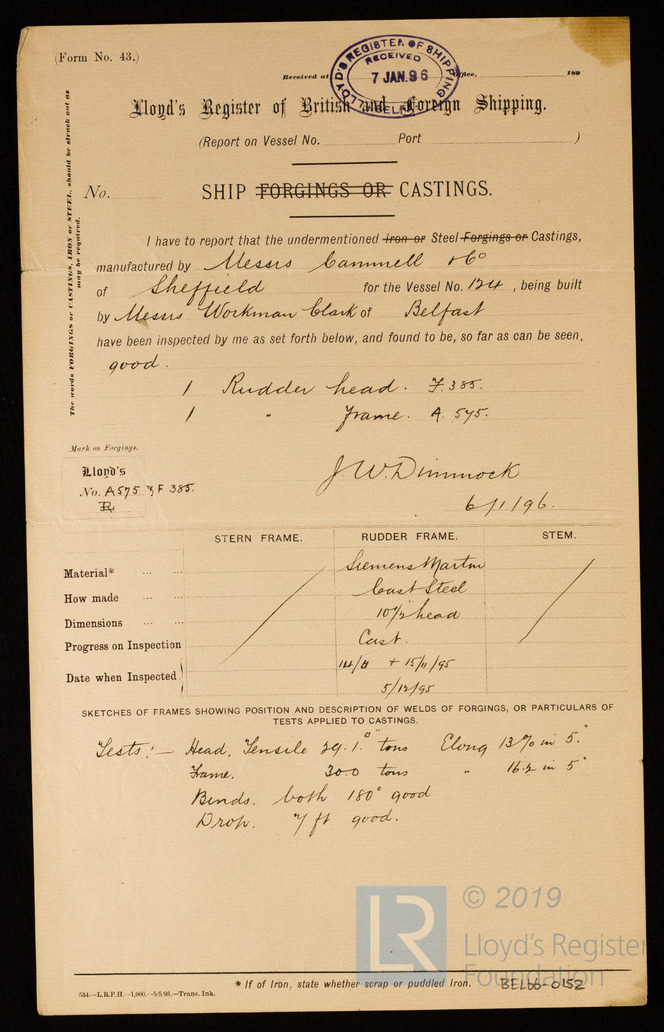 (Form No. 43.)
LLOYD'S REGISTER OF SHIPPING
RECEIVED
7 JAN. 96
Received at Office, 189
Lloyd's Register of British and Foreign Shipping.
(Report on Vessel No. Port )
No. SHIP FORGINGS OR CASTINGS.
The words FORGINGS or CASTINGS, IRON or STEEL, should be struck out as
may be required.
I have to report that the undermentioned Iron or Steel Forgings or Castings,
manufactured by Messrs Cammell & Co
of Sheffield for the Vessel No. 124, being built
by Messrs Workman Clark of Belfast
have been inspected by me as set forth below, and found to be, so far as can be seen,
good.
1 Rudder head. F. 385.
1 " Frame. A. 575.
Mark on Forgings.
Lloyd's
No. A575 & F 385.
J. W. Dimmock
6/1/96.
STERN FRAME. RUDDER FRAME. STEM.
Material* Siemens Martin
How made Cast Steel
Dimensions 10 1/2 head
Progress on Inspection Cast.
Date when Inspected + 15/11/95
5/12/95
SKETCHES OF FRAMES SHOWING POSITION AND DESCRIPTION OF WELDS OF FORGINGS, OR PARTICULARS OF
TESTS APPLIED TO CASTINGS.
Tests:— Head, Tensile 29.1 tons Elong 13% in 5"
Frame. 30.0 tons " 16.2 in 5"
Bends. both 180° good
Drop. 7 ft good.
© 2019
LR
Lloyd's Register
Foundation
* If of Iron, state whether scrap or puddled Iron.
BEL06-0152
534.—L.R.P.H.—1,000.—5/5/93.—Trans. Ink.